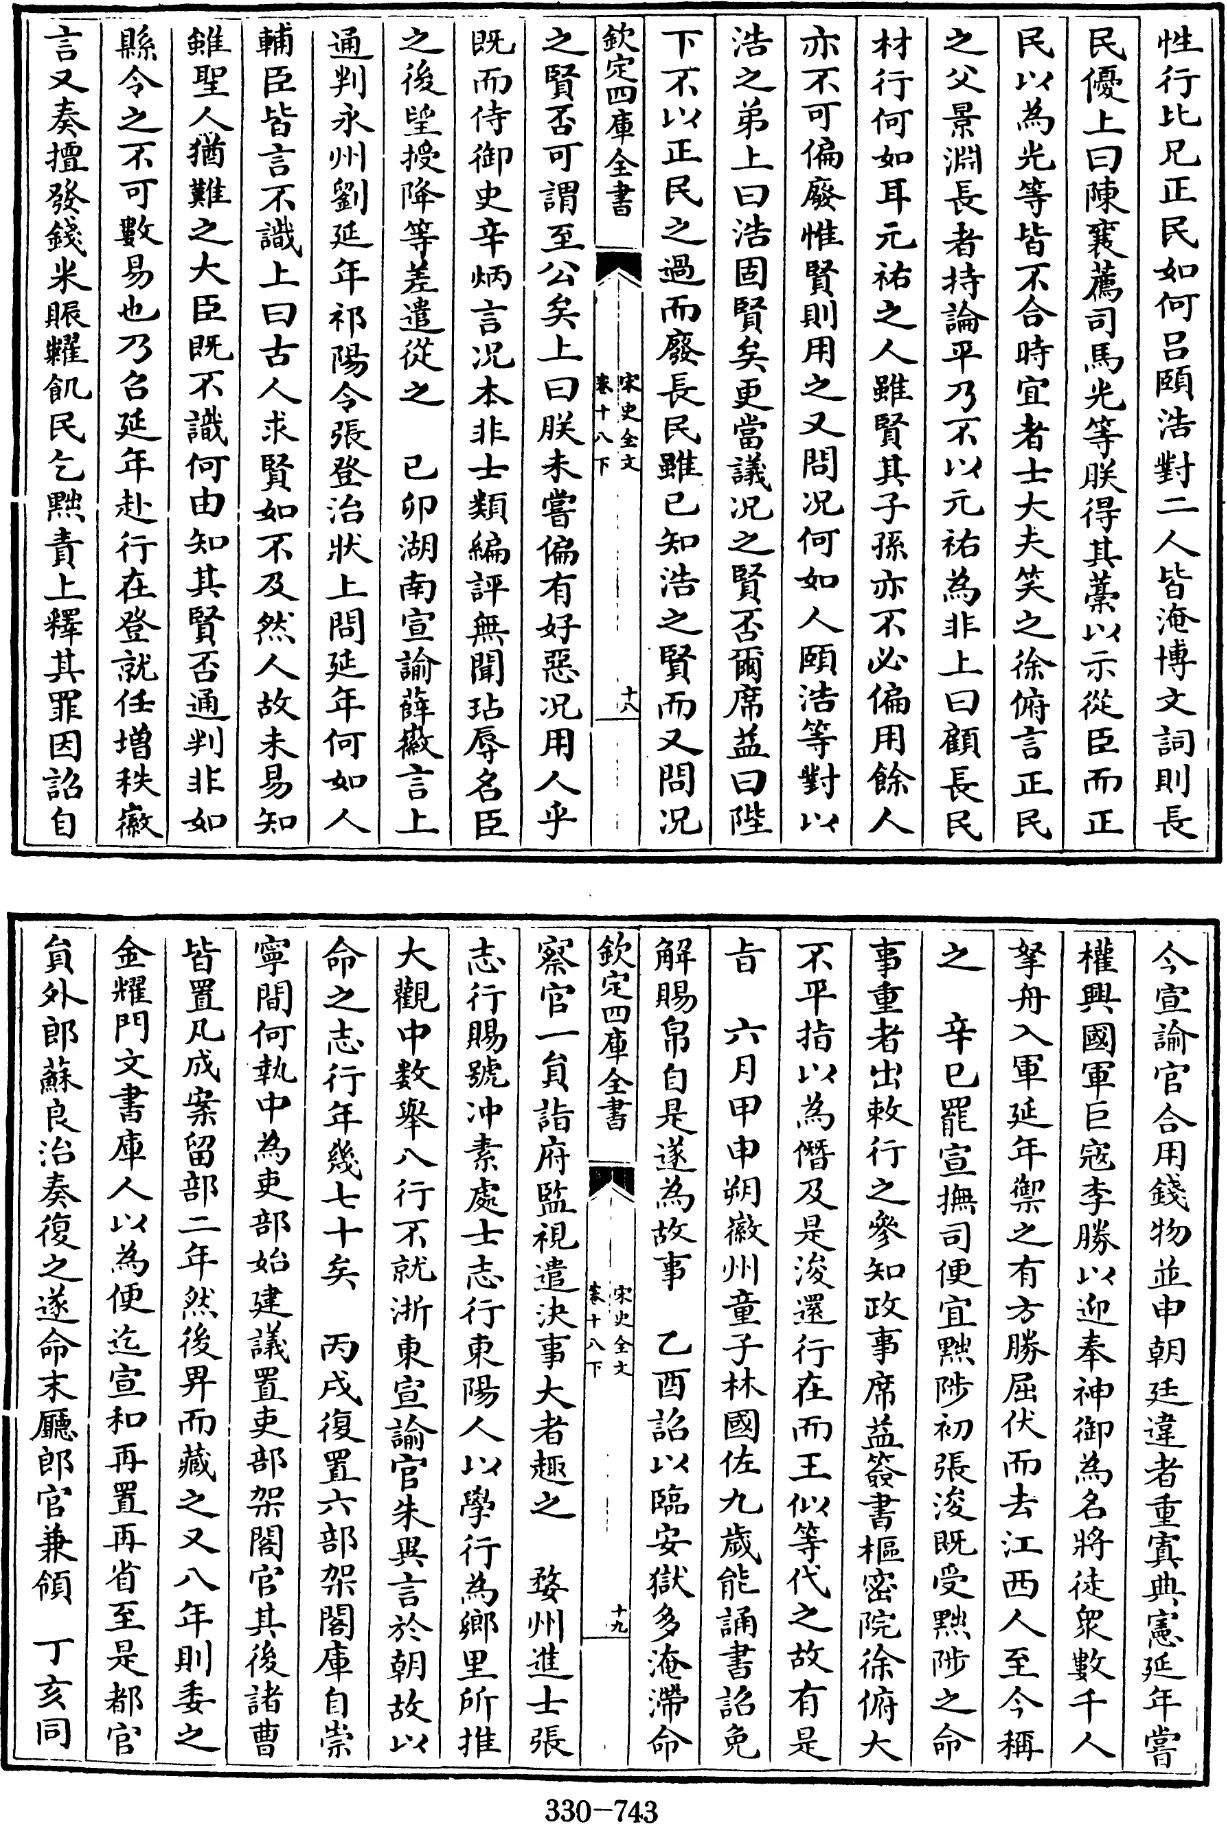 性行比兄正民如何吕頤浩對二人皆淹博文詞則長
民優上曰陳襄薦司馬光等朕得其藁以示從臣而正
民以為光等皆不合時宜者士大夫笑之徐俯言正民
之父景淵長者持論平乃不以元祐為非上曰顧長民
材行何如耳元祐之人雖賢其子孫亦不必偏用餘人
亦不可偏廢惟賢則用之又問况何如人頤浩等對以
浩之弟上曰浩固賢矣更當議况之賢否爾席益曰陛
下不以正民之過而廢長民雖已知浩之賢而又問况
欽定四庫全書
宋史全文
卷十八下
十八
之賢否可謂至公矣上曰朕未嘗偏有好惡况用人乎
既而侍御史辛炳言况本非士類編評無聞玷辱名臣
之後望授降等差遣從之 已卯湖南宣諭薛徽言上
通判永州劉延年祁陽令張登治狀上問延年何如人
輔臣皆言不識上曰古人求賢如不及然人故未易知
雖聖人猶難之大臣既不識何由知其賢否通判非如
縣令之不可數易也乃召延年赴行在登就任增秩徽
言又奏擅發錢米賑糶飢民乞黜責上釋其罪因詔自
今宣諭官合用錢物並申朝廷違者重寘典憲延年嘗
權興國軍巨寇李勝以迎奉神御為名將徒衆數千人
拏舟入軍延年禦之有方勝屈伏而去江西人至今稱
之 辛巳罷宣撫司便宜黜陟初張浚既受黜陟之命
事重者出敕行之參知政事席益簽書樞密院徐俯大
不平指以為僭及是浚還行在而王似等代之故有是
旨 六月甲申朔徽州童子林國佐九歲能誦書詔免
解賜帛自是遂為故事 乙酉詔以臨安獄多淹滯命
欽定四庫全書
宋史全文
卷十八下
十九
察官一員詣府監視遣決事大者趣之 婺州進士張
志行賜號沖素處士志行東陽人以學行為鄉里所推
大觀中數舉八行不就浙東宣諭官朱異言於朝故以
命之志行年幾七十矣 丙戌復置六部架閣庫自崇
寧間何執中為吏部始建議置吏部架閣官其後諸曹
皆置凡成案留部二年然後畀而藏之又八年則委之
金耀門文書庫人以為便迄宣和再置再省至是都官
員外郎蘇良治奏復之遂命末廳郎官兼領 丁亥同
330-743